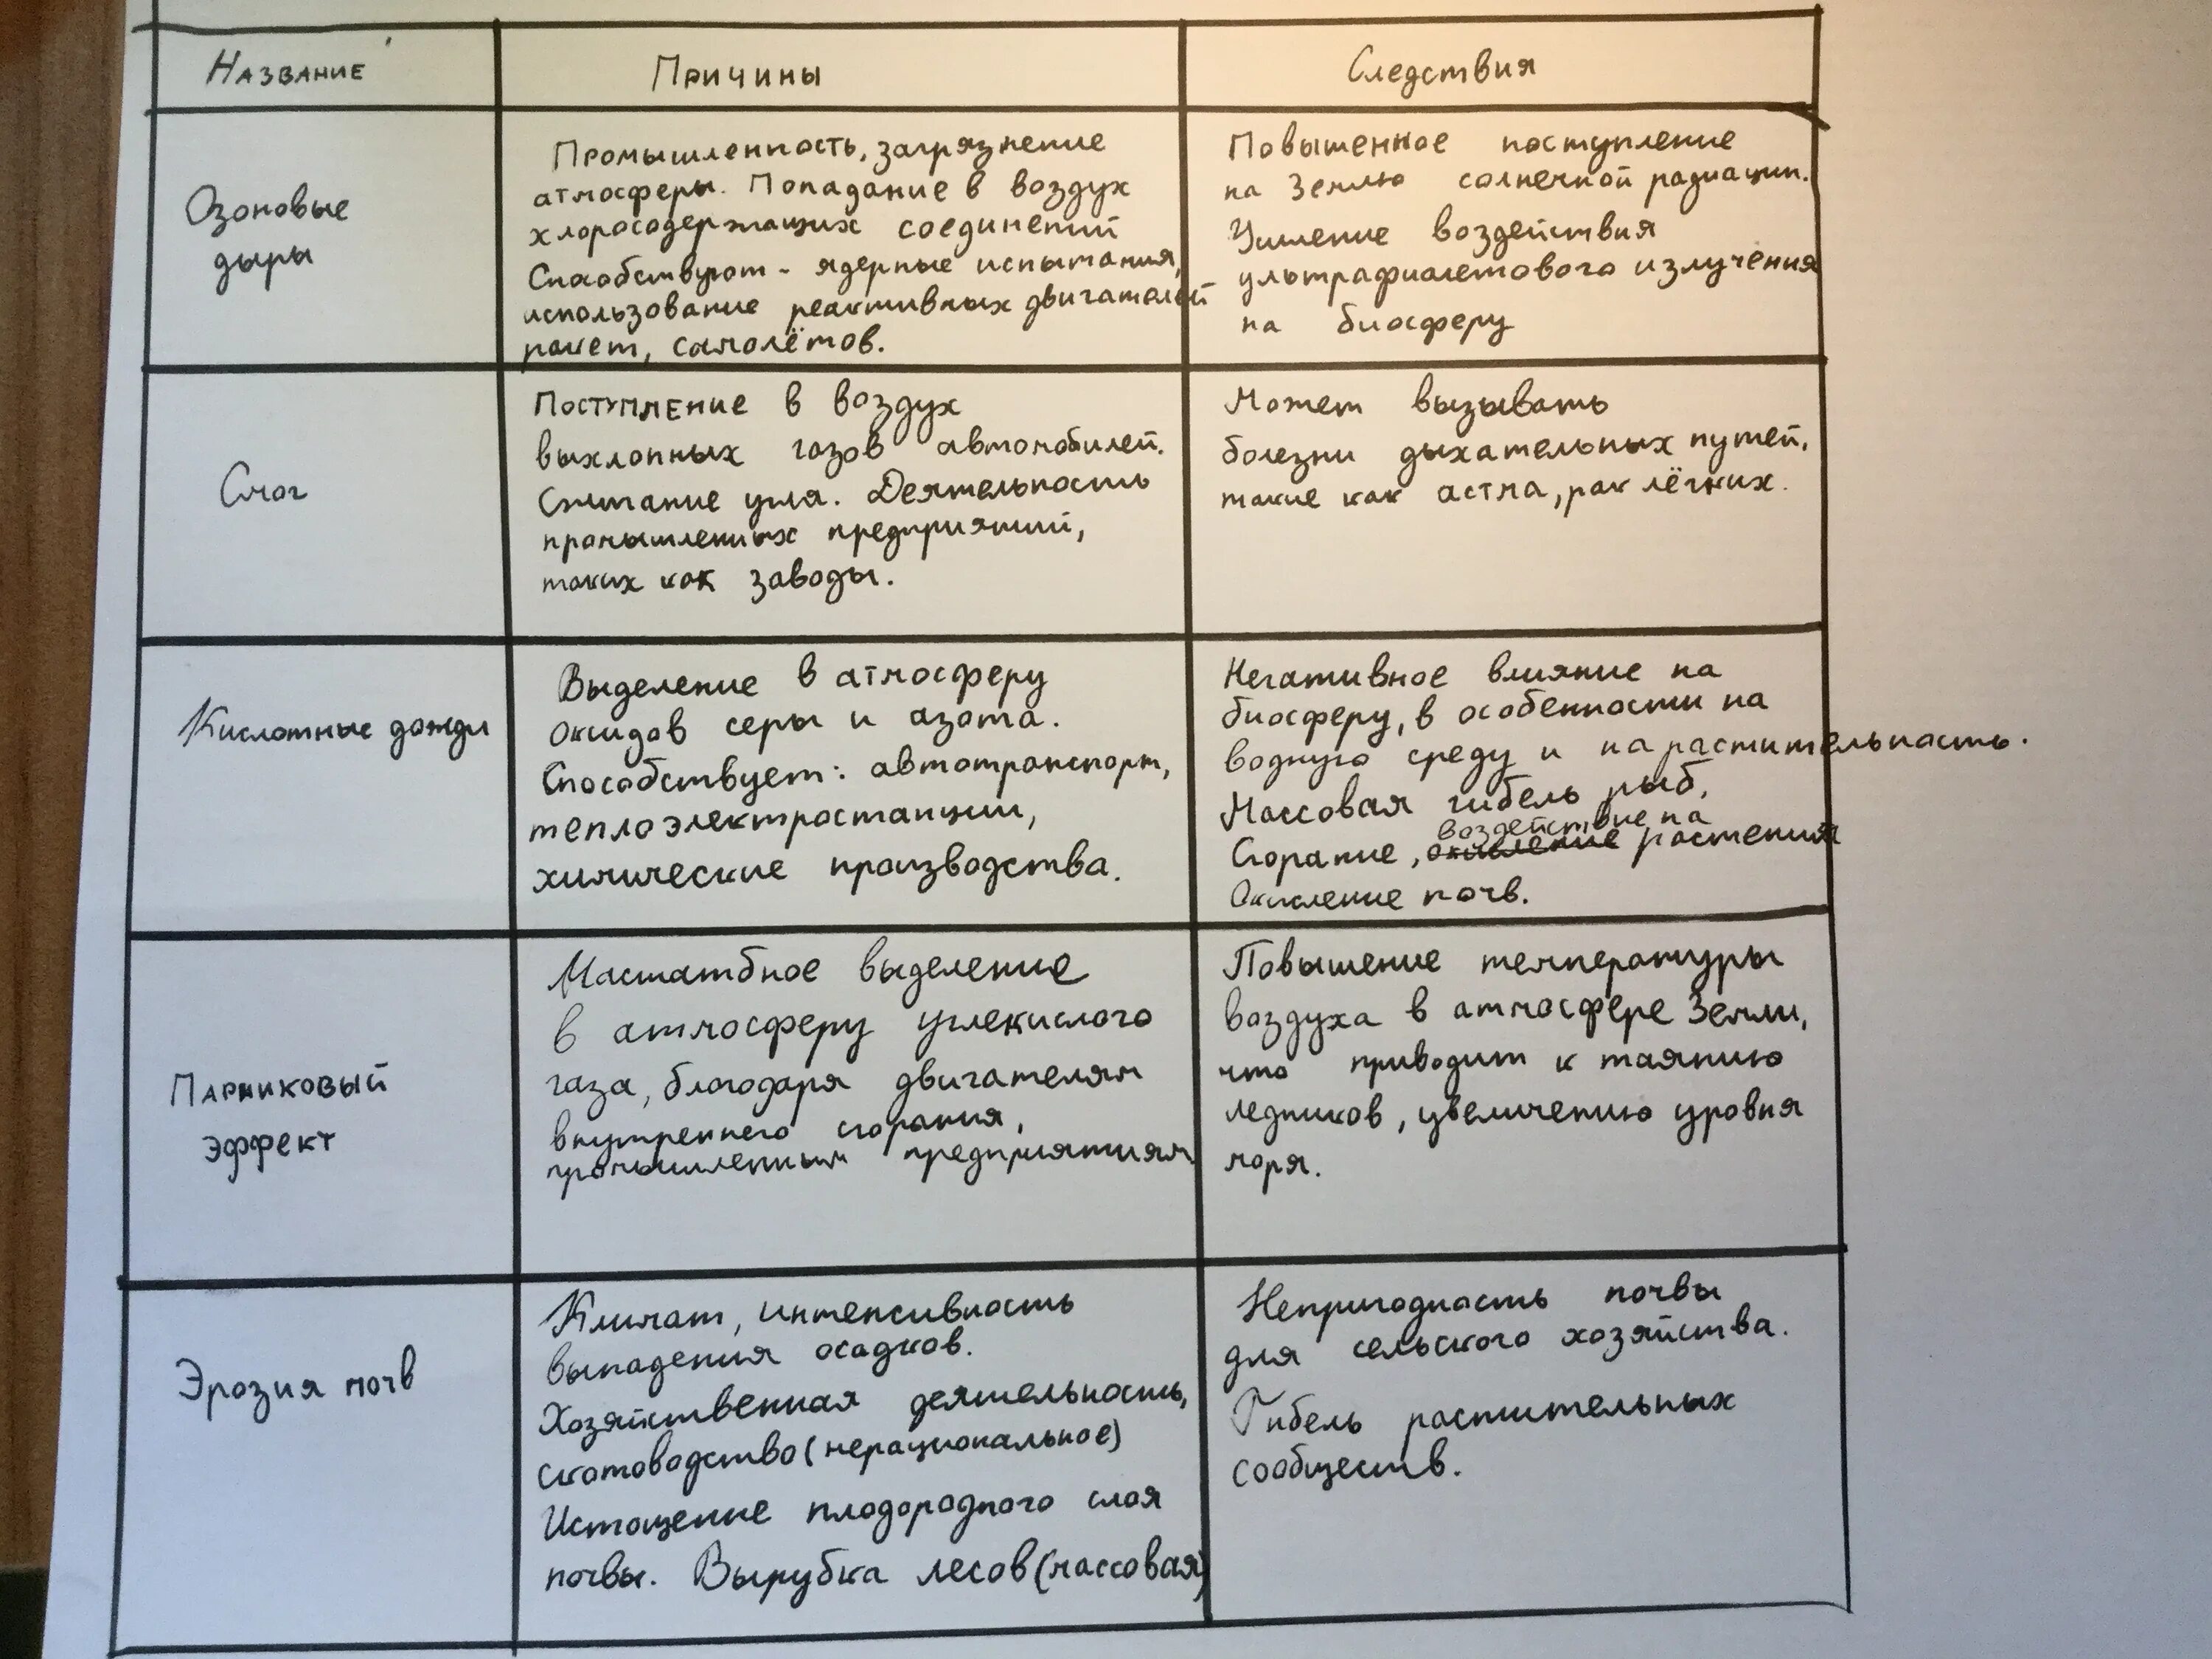 Название
Причины
Следствия
Озоновые
дыры
Промышленность, загрязнение
атмосферы. Попадание в воздух
хлоросодержащих соединений
Способствуют - ядерные испытания,
использование реактивных двигателей
ракет, самолётов.
Повышенное поступление
на Землю солнечной радиации.
Усиление воздействия
ультрафиолетового излучения
на биосферу
Смог
Поступление в воздух
выхлопных газов автомобилей.
Сжигание угля. Деятельность
промышленных предприятий,
таких как заводы.
Может вызывать
болезни дыхательных путей,
такие как астма, рак лёгких.
Кислотные дожди
Выделение в атмосферу
оксидов серы и азота.
Способствует: автотранспорт,
теплоэлектростанции,
химические производства.
Негативное влияние на
биосферу, в особенности на
водную среду и на растительность.
Массовая гибель рыб,
воздействие на
Сгорание, растения
Окисление почв.
Парниковый
эффект
Масштабное выделение
в атмосферу углекислого
газа, благодаря двигателям
внутреннего сгорания,
промышленным предприятиям
Повышение температуры
воздуха в атмосфере Земли,
что приводит к таянию
ледников, увеличению уровня
моря.
Эрозия почв
Климат, интенсивность
выпадения осадков.
Хозяйственная деятельность,
скотоводство (нерациональное)
Истощение плодородного слоя
почвы. Вырубка лесов (массовая)
Непригодность почвы
для сельского хозяйства.
Гибель растительных
сообществ.